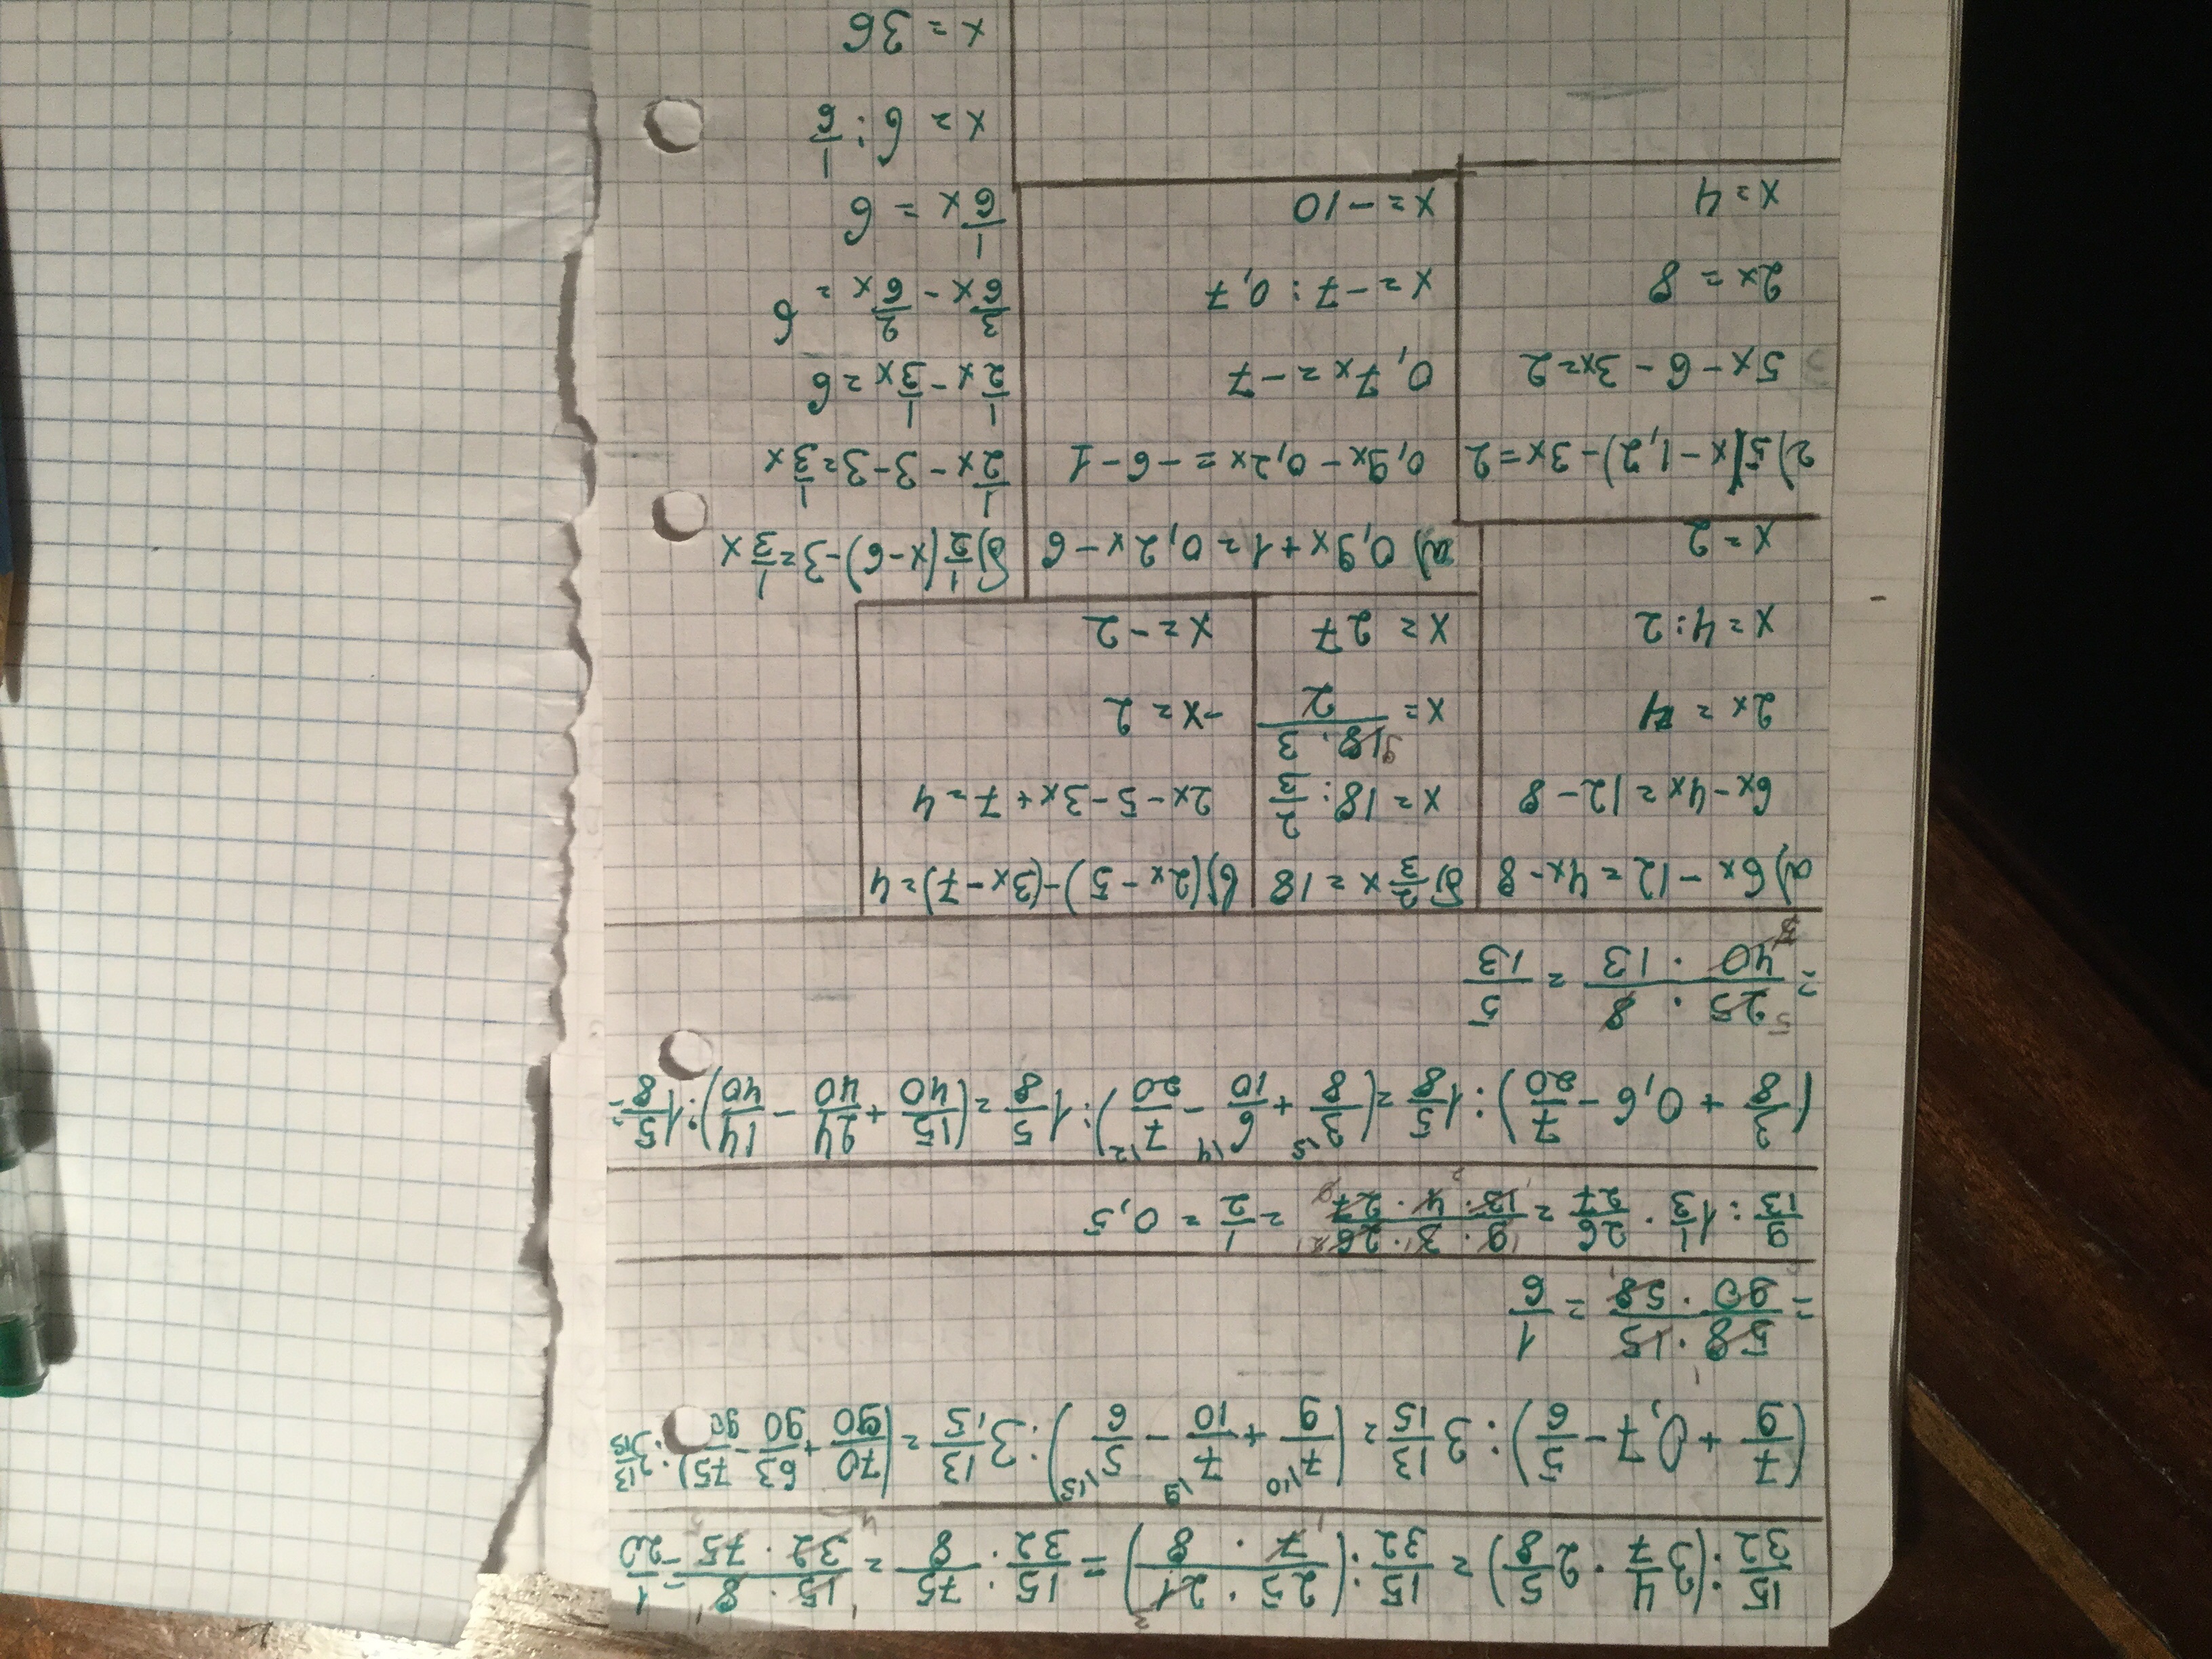 15/32 : (3 4/7 · 2 5/8) = 15/32 : (25 · 21 / 7 · 8) = 15/32 · 75/8 = 15 · 8 / 32 · 75 = 1/20
(7/9 + 0,7 - 5/6) : 3 13/15 = (7/9 \10 + 7/10 \9 - 5/6 \15) : 3 13/15 = (70/90 + 63/90 - 75/90) : 3 13/15
= 58 · 15 / 90 · 58 = 1/6
9/13 : 1 1/3 · 26/27 = 9 · 3 · 26 / 13 · 4 · 27 = 1/2 = 0,5
(3/8 + 0,6 - 7/20) : 1 5/8 = (3/8 \5 + 6/10 \4 - 7/20 \2) : 1 5/8 = (15/40 + 24/40 - 14/40) : 1 5/8 =
= 25 · 8 / 40 · 13 = 5/13
а) 6x - 12 = 4x - 8
6x - 4x = 12 - 8
2x = 4
x = 4 : 2
x = 2
б) 2/3 x = 18
x = 18 : 2/3
x = 18 · 3 / 2
x = 27
в) (2x - 5) - (3x - 7) = 4
2x - 5 - 3x + 7 = 4
-x = 2
x = -2
2) 5(x - 1,2) - 3x = 2
5x - 6 - 3x = 2
2x = 8
x = 4
а) 0,9x + 1 = 0,2x - 6
0,9x - 0,2x = -6 - 1
0,7x = -7
x = -7 : 0,7
x = -10
б) 1/2 (x - 6) - 3 = 1/3 x
1/2 x - 3 - 3 = 1/3 x
1/2 x - 1/3 x = 6
3/6 x - 2/6 x = 6
1/6 x = 6
x = 6 : 1/6
x = 36